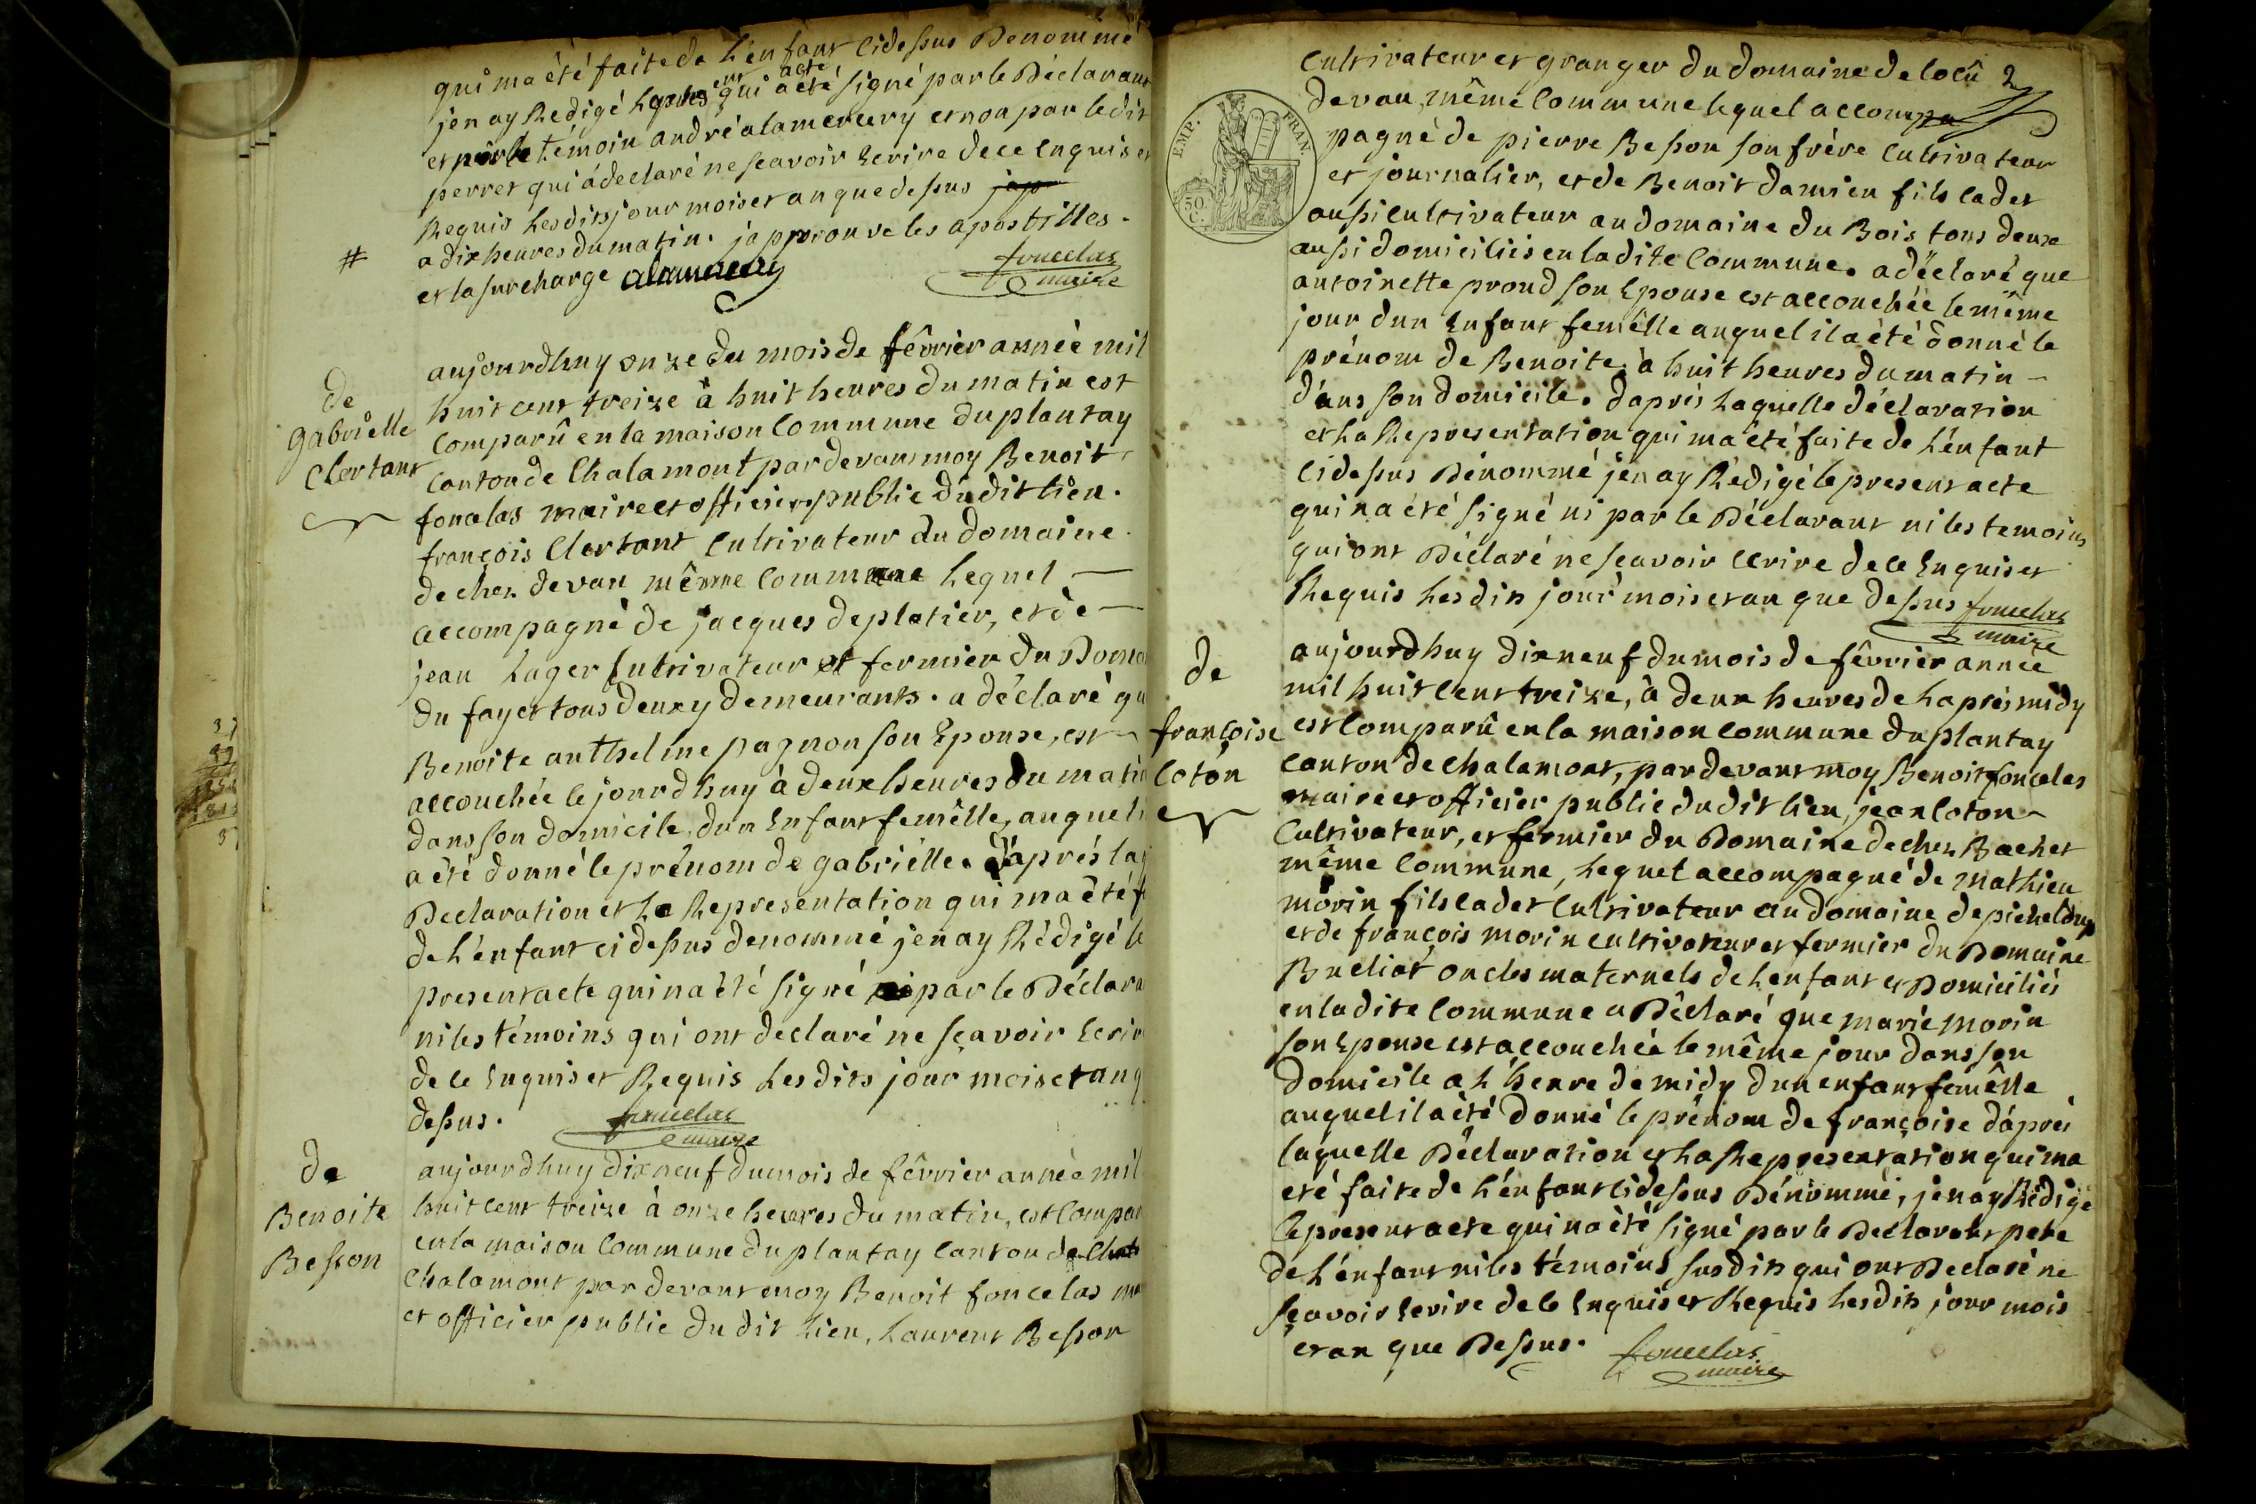 qui ma été faite de l'énfant cidessus Denommé
jen ay Redigé le présent acte qui a été signé par le Déclarant
et par le témoin andré alamercery et non par ledit
perret qui á declaré ne sçavoir Ecrire de ce Enquis et
Requis Lesdits jour mois et an que dessus
# a dix heures du matin. japprouve les apostilles.
et la surcharge alamercery
foncelas
maire
de
Gabriélle
Clertant
aujourdhuy onze du mois de février année mil
huit cent treize à huit heures du matin est
Comparû en la maison Commune du plantay
Canton de Chalamont pardevant moy Benoit
foncelas maire et officier public du dit lieu.
françois Clertant Cultivateur du domaine
de chez devau même Commune Lequel —
accompagné de jacques deplatier, et de —
jean Lager Cultivateur et fermier du Doma
du fay et tous deux y demeurants. a déclaré qu
Benoite anthelme pagnon son Epouse, est
accouchée le jourdhuy à deux heures du matin
dans son domicile, dun Enfant femêlle, auquel i
a été donné le prénom de gabriélle. d'aprés la
Declaration et La Representation qui ma été f
de L'énfant ci dessus denommé jen ay Rédigé le
present acte qui na été signé ni par le Déclara
ni les témoins qui ont declaré ne sçavoir Ecrir
de ce Enquis et Requis Les dits jour mois et an q
dessus.
foncelas
maire
De
Benoite
Besson
aujourdhuy dix neuf du mois de février année mil
huit cent treize à onze heures du matin, est Compar
en la maison Commune du plantay Canton de
Chalamont par devant moy Benoit foncelas m
et officier public du dit Lieu, Laurent Besson
2
EMP. FRAN.
50
C.
Cultivateur et granger du domaine de
devau, même Commune lequel accom
pagné de pierre Besson son frére Cultivateur
et journalier, et de Benoit damien fils cadet
aussi Cultivateur au domaine du Bois tous deux
aussi domiciliés en ladite Commune. a déclaré que
antoinette proud son Epouse est accouchée le même
jour dun Enfant femêlle auquel il a été donné le
prénom de Benoite, à huit heures du matin —
dans son domicile. daprés Laquelle déclaration
et La Representation qui ma été faite de L'énfant
cidessus Dénommé jen ay Rédigé le present acte
qui na été signé ni par le Déclarant ni les temoins
qui ont Déclaré ne sçavoir Ecrire de ce Enquis et
Requis Lesdits jour mois et an que dessus foncelas
maire
de
françoise
Coton
aujourdhuy dix neuf du mois de février année
mil huit cent treize, à deux heures de Laprés midy
est Comparû en la maison Commune du plantay
Canton de Chalamont, pardevant moy Benoit foncelas
maire et officier public du dit lieu, jean Coton
Cultivateur, et fermier du Domaine de chez Bachet
même Commune, Lequel accompagné de mathieu
morin fils cadet Cultivateur au domaine de
et de françois morin cultivateur et fermier du Domaine
Bucliat oncles maternels de Lenfant et Domiciliés
en ladite Commune a Déclaré que marie morin
son Epouse est accouchée le même jour dans son
domicile a L'heure de midy dun enfant femêlle
auquel il a été donné le prénom de françoise d'aprés
laquelle Déclaration et La Representation qui ma
eté faite de L'énfant cidessus Dénommé, jen ay Rédigé
le present acte qui na été signé par le Declarant pere
de L'énfant ni les témoins susdits qui ont Declaré ne
sçavoir Ecrire de ce Enquis et Requis Lesdits jour mois
et an que Dessus.
foncelas
maire